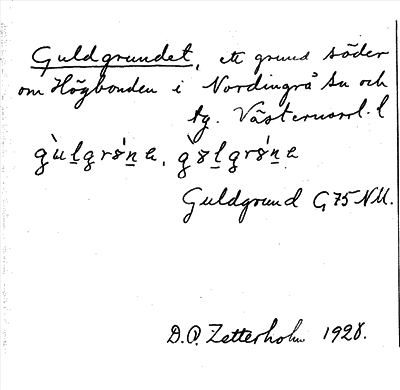 Guldgrundet, ett grund söder
om Högbonden i Nordingrå sn och
tg. Västernorrl. l
Guldgrund G 75 NV.
D.O. Zetterholm 1928.